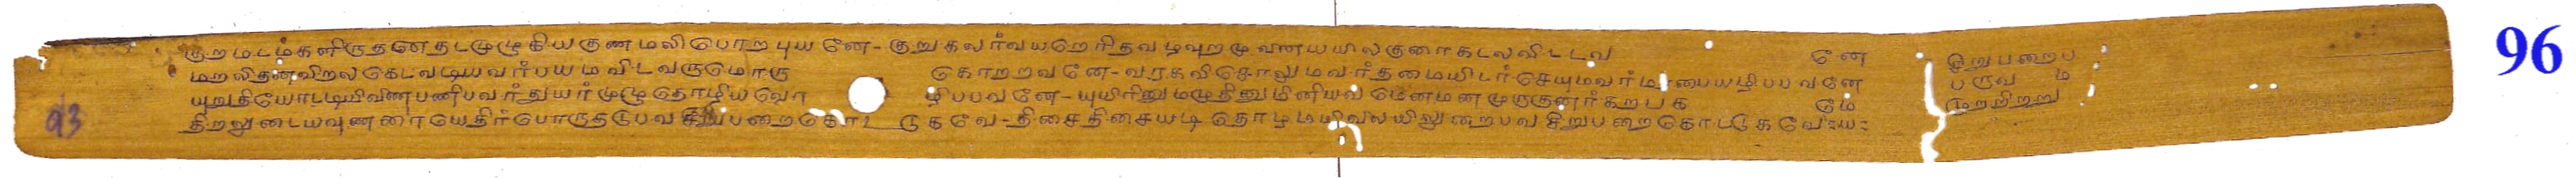 குறமடமகளிருதனதடமுழுகியகுணமலிபொறபுயனே-குறுகலர்வயறெரிதவழவுறமு வினயயிலகுரைகடலவிடடவ னே சிறுபறைப
மறலிதனவிறலகெடவடியவர்பயமவிடவருமொரு கொறறவனே-வரகவிசொலுமவர்தமையிடர்செயுமவர்மரபையழிபபவனே பருவ ம
யுறுதியோடடியிணைபணிபவர்துயர்முழுதொழியவொ ழிபபவனே-யுயிரினுமமுதினுமினியவ னெனமனமுருகுனர்கறபக மே முறறிறறு
திறலுடையவுணரையெதிர்பொருதடுபவசிறுபறைகொட டுகவே-திசைதிசையடி தொழமயிலையிலுறைபவ சிறுபறைகொடடுகவே
93
96